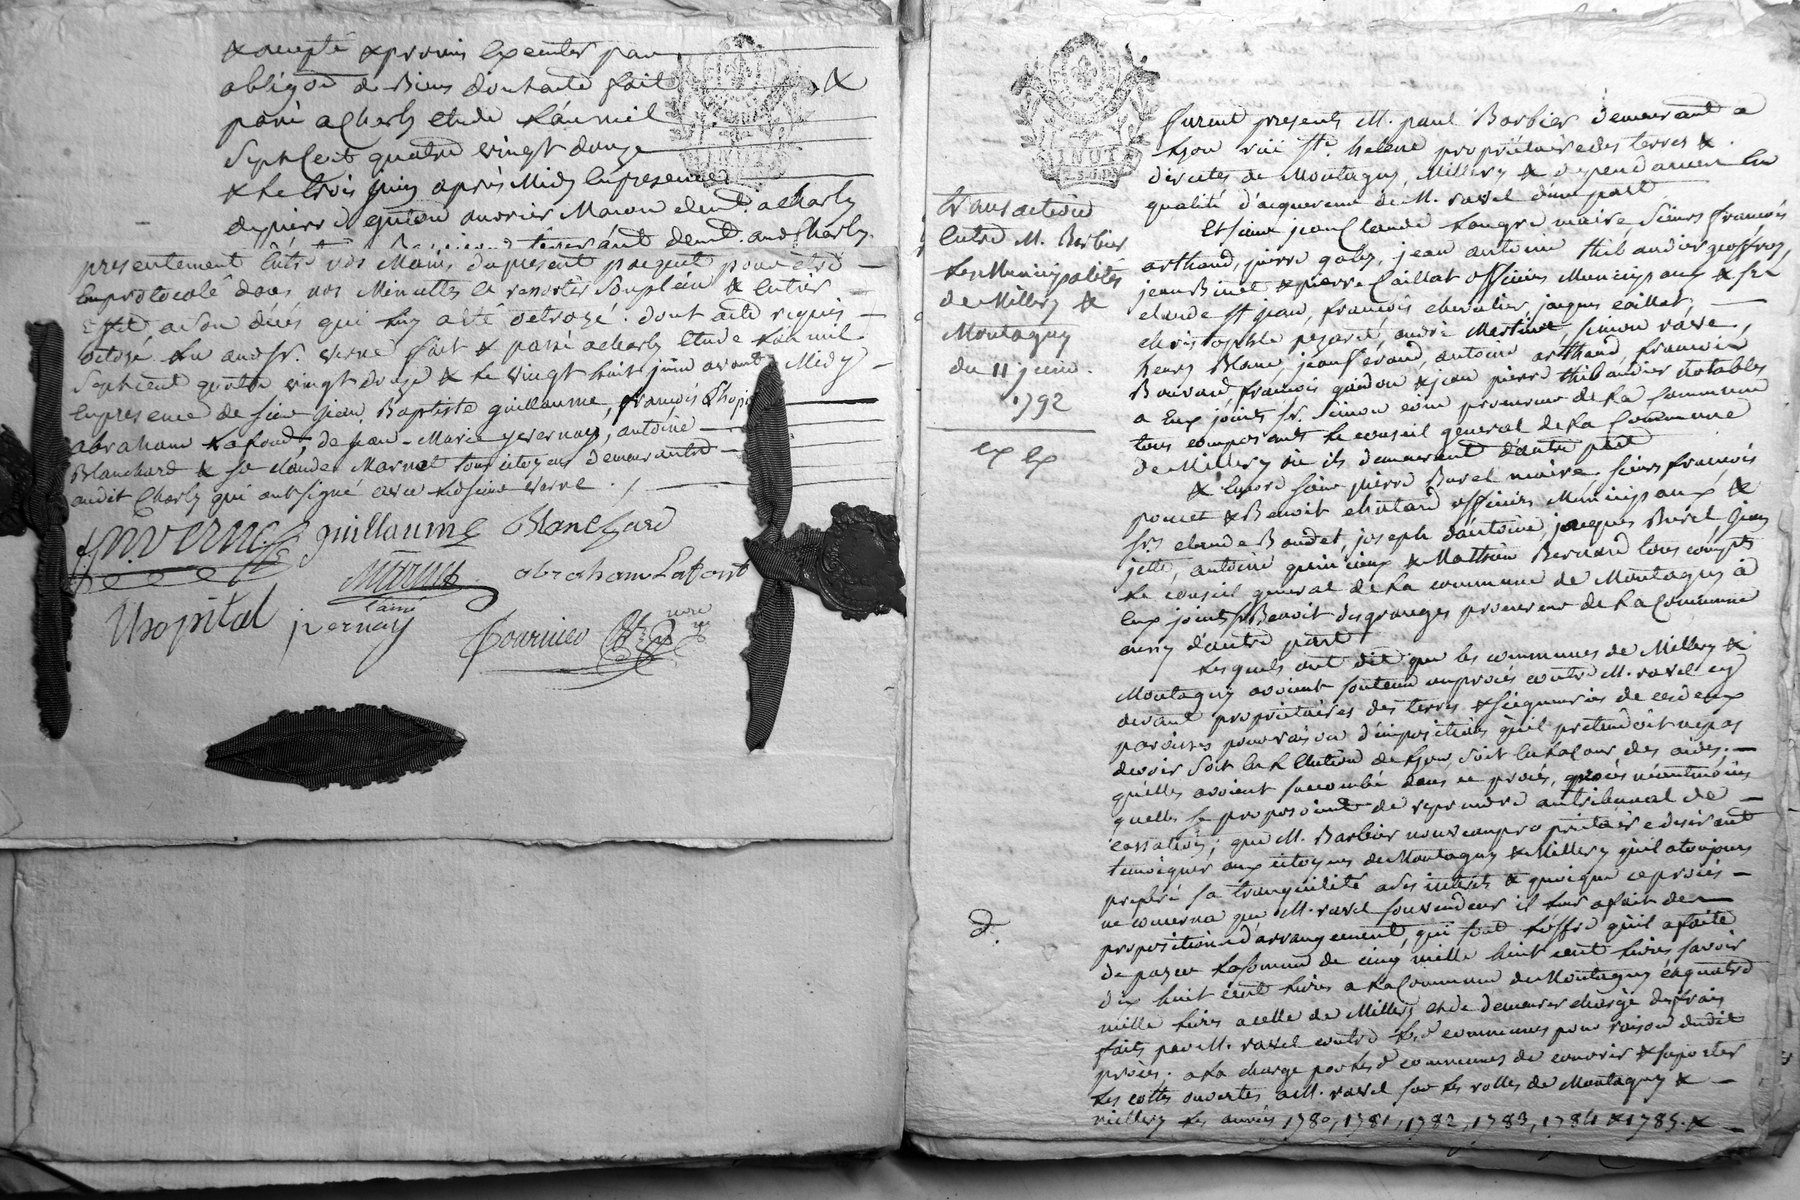 & accepté & promis executer par
obligõn de Biens dont acte fait
passé a Charly etude L'an mil
Sept Cent quatre vingt douze
& Le trois juin après Midy En presence
de pierre guton ouvrier Macon demt. a Charly
demt. aud. Charly.
presentement Entre nos Mains dapresent paraphé pour être
Enprotocolé dans nos Minuttes la remettre Souplein & Entier
Effet a Son deüe qui luy a été octroyé. dont acte requis
octroyé. Lu aud. Sr. verne fait & passé a Charly Etude L'an mil
Sept Cent quatre vingt douze & Le vingt huit juin avant Midy
En presence de Sieur jean Baptiste guillaume, françois Lhopital
abraham Lafond, de jean-Marie yvernay, antoine
Blanchard & Sr claude Marnet tous citoyens demeurants
audit Charly qui ont signé avec Ledit Sieur verne.
verne guillaume Blanchard
abraham Lafont
Lhopital
Lainé
ivernay
fournier
INUT
transaction
Entre M. Barbier
Les Municipalités
de Millery &
Montagny
du 11 juin.
1792
Ex Ex
furent presents M. paul Barbier demeurant a
Lyon rüe Ste. helene propriétaire des terres &
directes de Montagny, Millery & dependances En
qualité d'acquereur de M. ravel d'une part
Et Sieur jean Claude Laugre maire, Sieurs françois
arthaud, pierre galey, jean antoine thibaudier geoffray,
jean Binet & pierre Caillat officiers Municipaux & Srs
claude St jean, françois chevalier, jacques caillat,
christophle pezaret, andré Martinet, Simon rave,
henry Blanc, jean ferand, antoine arthaud, françois
Bouvard, françois gaudon & jean pierre thibaudier Notables
a Eux joints Sr. Simon côme procureur de La Commune
tous composants Le conseil general de La Commune
de Millery où ils demeurent d'autre part
& Encore Sieur pierre Burel maire, Sieurs françois
poncet & Benoit chatard officiers Municipaux &
Srs. claude Baudet, joseph d'antoine, jacques Burel, jean
jette, antoine guinieux & Mathieu Bernard tous comps
Le conseil general de La commune de Montagny à
Eux joints Sr Benoit desgranges procureur de La Commune
aussy d'autre part
Lesquels ont dit que les communes de Millery &
Montagny avoient Soutenu un procès contre M. ravel cy
devant propriétaires des terres & Seigneuries de ces deux
paroisses pour raison d'impositions qu'il prétendoit ne pas
devoir Soit En L'Election de Lyon, Soit En La Cour des aides, —
qu'elles avoient Succombé dans ce procès, procès néantmoins
quelles se proposoient de reprendre au tribunal de —
cassation; que M. Barbier nouveau propriétaire desirant
temoigner aux citoyens de Montagny & Millery qu'il a toujours
preferé Sa tranquilité a Ses interêts & quoique ce procès —
ne concerna que M. ravel Son vendeur il Leur a fait des
propositions d'arrangement, qui Sont L'offre qu'il a faite
de payer La Somme de cinq mille huit cent Livres Savoir
dix huit cent Livres a La Commune de Montagny & quatre
mille Livres a celle de Millery & de demeurer chargé des frais
faits par M. ravel contre Lesd. communes pour raison dudit
procès. a La charge par Lesd. communes de couvrir & Suporter
Les cottes ouvertes a M. ravel Sur Les rolles de Montagny & —
millery Les années 1780, 1781, 1782, 1783, 1784 & 1785. & —